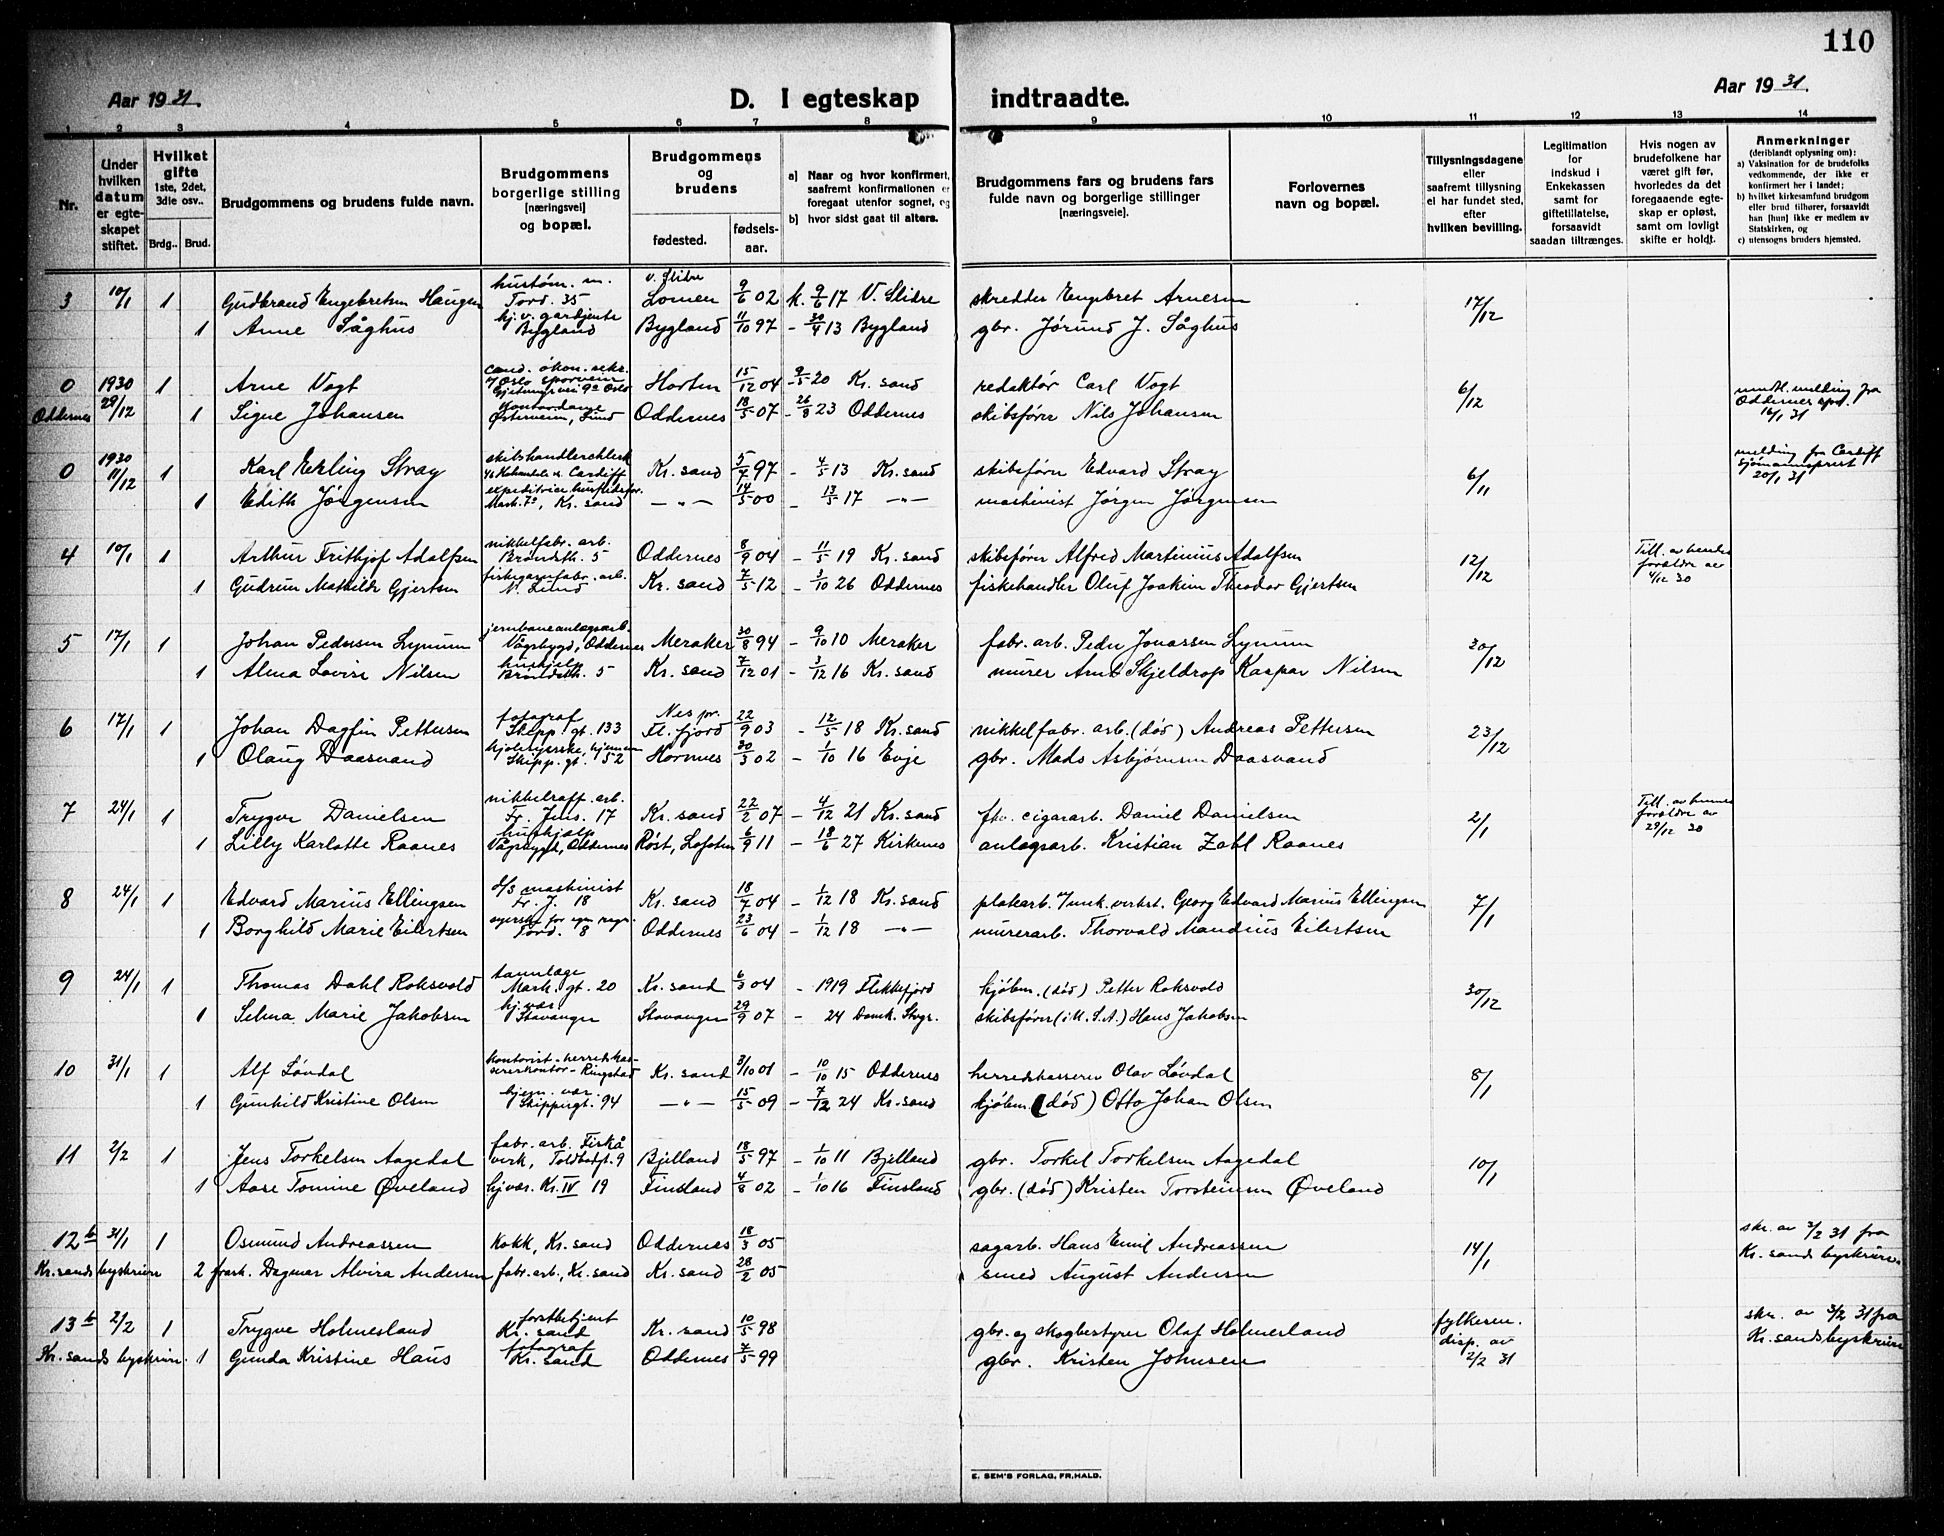 110
Aar 1931.
D. I egteskap indtraadte.
Aar 1931.
1 2 3 4 5 6 7 8 9 10 11 12 13 14
Nr.
Under hvilken datum er egteskapet stiftet.
Hvilket gifte 1ste, 2det, 3die osv..
Brdg.. Brud.
Brudgommens og brudens fulde navn.
Brudgommens borgerlige stilling [næringsvei] og bopæl.
Brudgommens og brudens
fødested. fødsels-aar.
a) Naar og hvor konfirmert, saafremt konfirmationen er foregaat utenfor sognet, og
b) hvor sidst gaat til alters.
Brudgommens fars og brudens fars fulde navn og borgerlige stillinger [næringsveie].
Forlovernes navn og bopæl.
Tillysningsdagene eller saafremt tillysning ei har fundet sted, efter hvilken bevilling.
Legitimation for indskud i Enkekassen samt for giftetillatelse, forsaavidt saadan tiltrænges.
Hvis nogen av brudefolkene har været gift før, hvorledes da det foregaaende egteskap er opløst, samt om lovligt skifte er holdt.
Anmerkninger (deriblandt oplysning om): a) Vaksination for de brudefolks vedkommende, der ikke er konfirmert her i landet; b) hvilket kirkesamfund brudgom eller brud tilhører, forsaavidt han [hun] ikke er medlem av Statskirken, og c) utensogns bruders hjemsted.
3 10/1 1 Gudbrand Engebretsen Haugen Tord. 35 v. Slidre Lomen 9/6 02 k. 9/6 17 V. Slidre skredder Engebret Arnesen 17/12
1 Anne Såghus hj. v. gardjente Bygland Bygland 11/10 97 - 30/4 13 Bygland gbr. Jørund J. Såghus
0 1930 1 Arne Vogt cand. økon. sekr. v/ Oslo sporveier Gjetemyrsvei 9a Oslo Horten 15/12 04 - 9/5 20 Kr. sand redaktør Carl Vogt 6/12 mndtl. melding fra Oddernes spr. 16/1 31
Oddernes 29/12 1 Signe Johansen Kontordame Østerveien, Lund Oddernes 18/5 07 - 26/8 23 Oddernes skibsfører Nils Johansen
0 1930 11/12 1 Karl Erling Stray skibshandlerclerk Cardiff Kr. sand 5/7 97 - 4/5 13 Kr. sand skibsfører Edvard Stray 6/11 melding fra Cardiff sjømannsprest 20/1 31
1 Edith Jørgensen expeditrice husflidsfor. Mark. 7b, Kr. sand - " - 14/5 00 - 13/5 17 - " - maskinist Jørgen Jørgensen
4 10/1 1 Arthur Frithjof Adolfsen nikkelfabr. arb. Brøndsth. 5 Oddernes 8/9 04 - 11/5 19 Kr. sand skibsfører Alfred Martinius Adolfsen 12/12 Till. av hendes forældre av 4/12 30
1 Gudrun Mathilde Gjertsen fiskegarnfabr. arb. N. Lund Kr. sand 7/5 12 - 3/10 26 Oddernes fiskehandler Oluf Joakim Theodor Gjertsen
5 17/1 1 Johan Pedersen Lynum jernbaneanlægsarb. Vågsbygd, Oddernes Meraker 30/8 94 - 9/10 10 Meraker fabr. arb. Peder Jonassen Lynum 30/12
1 Alma Lovise Nilsen hushjelp Brøndsth. 5 Kr. sand 7/12 01 - 3/12 16 Kr. sand murer Arnt Skjeldrop Kaspar Nilsen
6 17/1 1 Johan Dagfin Pettersen fotograf Skipp. gt. 133 Nes pr. Fl. fjord 22/9 03 - 12/5 18 Kr. sand nikkelfabr. arb. (død) Andreas Pettersen 23/12
1 Olaug Daasvand kjolesyerske, hjemme Skipp. gt. 52 Hornnes 30/3 02 - 1/10 16 Evje gbr. Mads Asbjørnsen Daasvand
7 24/1 1 Trygve Danielsen nikkelraff. arb. Fr. Jens. 17 Kr. sand 22/2 07 - 4/12 21 Kr. sand fhv. cigararb. Daniel Danielsen 2/1 Till. av hennes forældre av 29/12 30
1 Lilly Karlotte Raanes hushjelp Vågsbygd, Oddernes Røst, Lofoten 6/9 11 - 18/6 27 Kirkenes anlægsarb. Kristian Zahl Raanes
8 24/1 1 Edvard Marius Ellingsen d/s maskinist Fr. J. 18 Kr. sand 18/7 04 - 1/12 18 Kr. sand platearb. v/ mek. verkst. Georg Edvard Marius Ellingsen 7/1
1 Borghild Marie Eilertsen syerske for egen regn. Tord. 8 Oddernes 23/6 04 - 1/12 18 - " - murerarb. Thorvald Mandius Eilertsen
9 24/1 1 Thomas Dahl Roksvold tannlæge Mark. gt. 20 Kr. sand 6/3 04 - 1919 Flekkefjord kjøbm. (død) Petter Roksvold 30/12
1 Selma Marie Jakobsen hj. vær. Stavanger Stavanger 29/9 07 - 24 Domk. Stvgr. skibsfører (i U. S. A.) Hans Jakobsen
10 31/1 1 Alf Løvdal kontorist - herredskassererkontor - Ringstad Kr. sand 3/10 01 - 10/10 15 Oddernes herredskasserer Olav Løvdal 8/1
1 Gunhild Kristine Olsen hjem. vær. Skippergt. 94 - " - 15/5 09 - 7/12 24 Kr. sand kjøbm. (død) Otto Johan Olsen
11 2/2 1 Jens Torkelsen Aagedal fabr. arb. Fiskå verk, Toldbodgt. 9 Bjelland 18/5 97 - 1/10 11 Bjelland gbr. Torkel Torkelsen Aagedal 10/1
1 Aase Tomine Øveland hj. vær. Kr. IV 19 Finsland 4/8 02 - 1/10 16 Finsland gbr. (død) Kristen Torsteinsen Øveland
12 b 31/1 1 Osmund Andreassen Kokk, Kr. sand Oddernes 18/3 05 sagarb. Hans Emil Andreassen 14/1 skr. av 3/2 31 fra Kr. sands byskriver.
Kr. sands byskriver 2 frask. Dagmar Alvira Andersen fabr. arb., Kr. sand Kr. sand 28/2 05 smed August Andersen
13 b 2/2 1 Trygve Holmesland forstbetjent Kr. sand Kr. sand 10/5 98 gbr. og skogbestyrer Olaf Holmesland fylkesm. disp. av 2/2 31 skr. av 3/2 31 fra Kr. sands byskriver
Kr. sands byskriver. 1 Gunda Kristine Haus fotograf Kr. sand Oddernes 7/5 99 gbr. Kristen Johnsen
E. SEM'S FORLAG, FR.HALD.